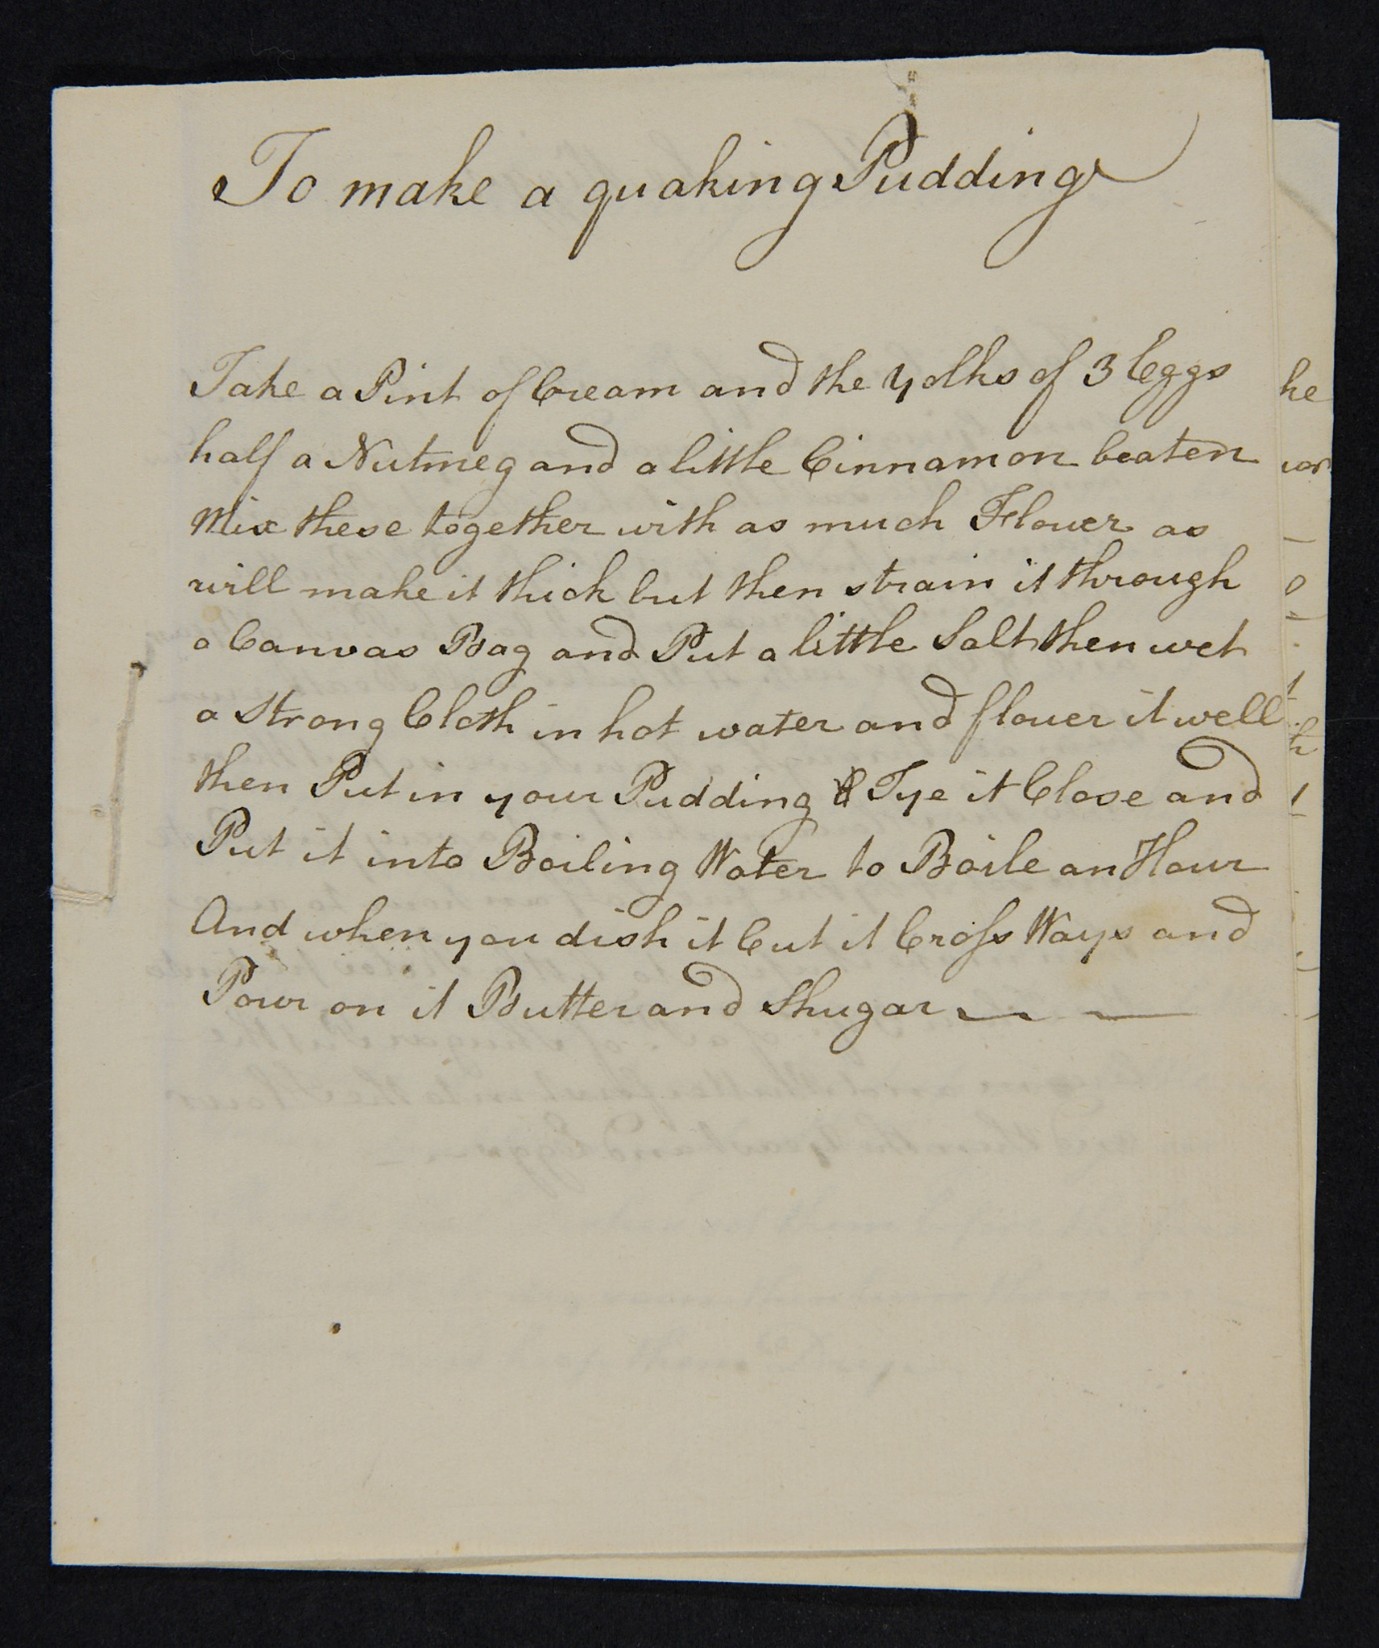 To make a quaking Pudding
Take a Pint of Cream and the yolks of 3 Eggs
half a Nutmeg and a little Cinnamon beaten
Mix these together with as much Flouer as
will make it thick but then strain it through
a Canvas Bag and Put a little Salt then wet
a Strong Cloth in hot water and flouer it well
then Put in your Pudding & Tye it Close and
Put it into Boiling Water to Boile an Hour
And when you dish it Cut it Croſs Ways and
Pour on it Butter and Shugar